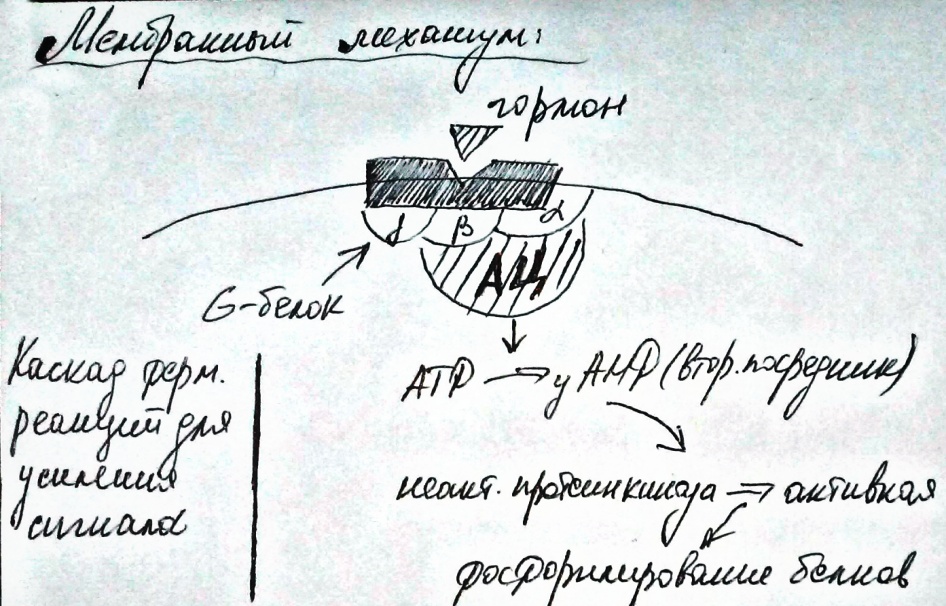 Мембранный механизм:
гормон
γ β α
АЦ
G-белок
Каскад ферм.
реакций для
усиления
сигнала
АТР → цАМР (втор. посредник)
неакт. протеинкиназа ⇒ активная
фосфорилирование белков